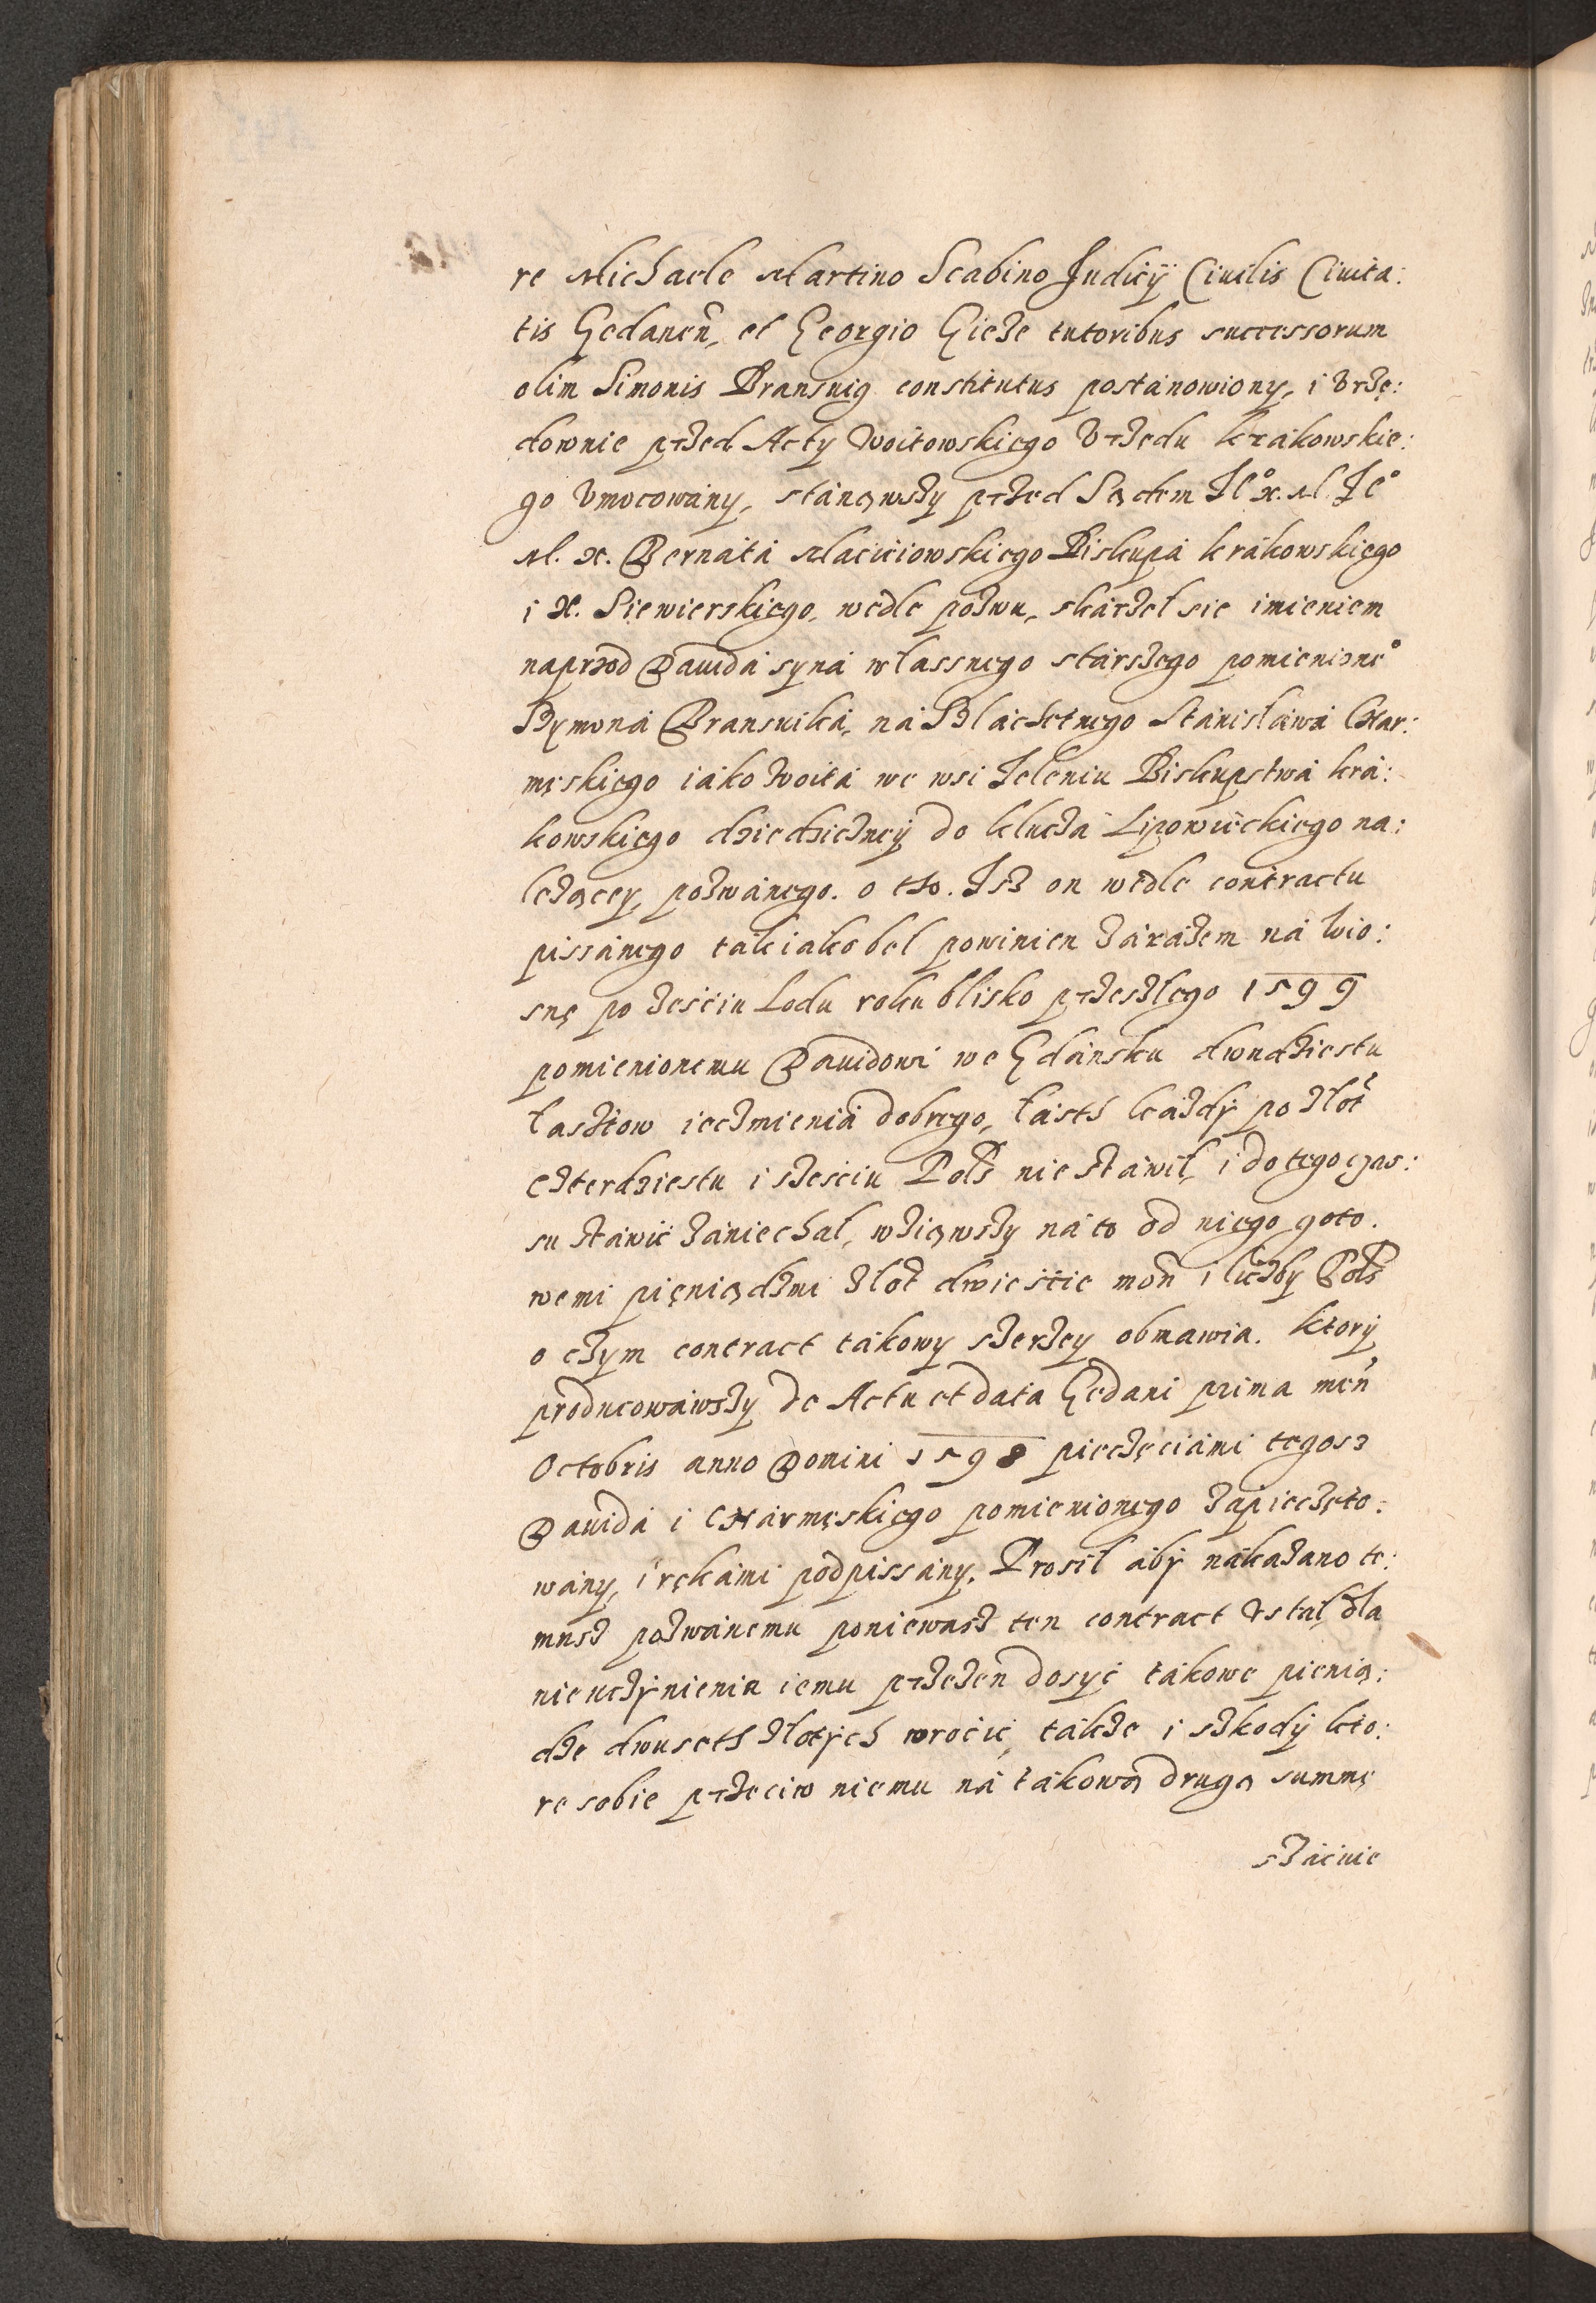 re Michaele Martino Scabino Judicÿ Ciuilis Ciuita:
tis Gedaneñ, et Georgio Gieze tutoribus successorum
olim Simonis Bransuig constitutus postánowiony, i Vrzę:
downie przed Acty Woitowskiego Vrzedu krákowskie:
go Vmocowány, stánąwszy przed Sądem Je° x. M. Je°
M. x. Bernátá Máciiowskiego Biskupá krákowskiego
i X. Siewierskiego, wedle pozwu, skárzeł sie imieniem
naprzod Dauidá syná własznego stárszego pomienione°
Szymoná Bransuiká, ná Szláchetnego Stánisłáwá Czar:
męskiego iáko Woitá we wsi Jeleniu Biskupstwá krá:
kowskiego dziedziczneÿ do kluczá Lipowiickiego na:
lezącey, pozwánego. o tho. Jsz on wedle contractu
pissánego ták iáko beł powinien zárázem ná wio:
snę po zesciu Lodu roku blisko przeszłego 1599
pomienionemu Dauidowi we Gdánsku dwudziestu
łasztow ięczmieniá dobrego, łásth kázdÿ po złot
czterdziestu i szesciu Pols nie stáwił, i do tego czas:
su stáwić zániechał, wziąwszy ná to od niego goto.
wemi pięniądzmi złot dwieście moñ i liczby Pols
o czym contract tákowy szerzey obmawia. ktorÿ
producowáwszy de Actu et data Gedani prima meñ
Octobris anno Domini 1598 pieczęciámi tegosz
Dauidá i Czármęskiego pomienionego zápieczęto:
wány, i rękámi podpissány, Prosił ábÿ nákazano te:
musz pozwánemu poniewasz ten contract Vstał dla
nieuczÿnienia iemu przezeń dosyć tákowe pienią:
dze dwuseth złotÿch wrocić, tákze i szkodÿ kto:
re sobie przeciw niemu ná tákową drugą summę
szácuie